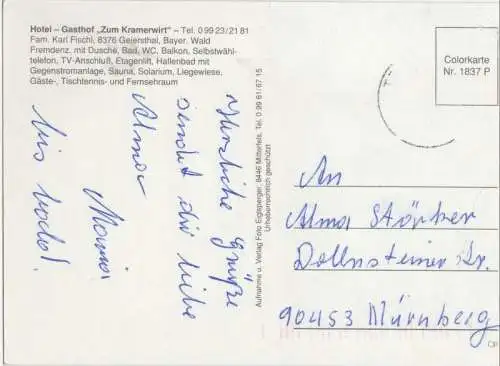 Hotel – Gasthof „Zum Kramerwirt“ – Tel. 0 99 23 / 21 81
Fam. Karl Fischl, 8376 Geiersthal, Bayer. Wald
Fremdenz. mit Dusche, Bad, WC, Balkon, Selbstwähl-
telefon, TV-Anschluß, Etagenlift, Hallenbad mit
Gegenstromanlage, Sauna, Solarium, Liegewiese,
Gäste-, Tischtennis- und Fernsehraum
Colorkarte
Nr. 1837 P
Herzliche Grüße
sendet dir liebe
Alma
Mania
bis bald!
Aufnahme u. Verlag Foto Eiglsperger, 8446 Mitterfels, Tel. 0 99 61 / 67 15
Urheberrechtlich geschützt
An
Alma Störber
Dollnsteiner Str.
90453 Nürnberg